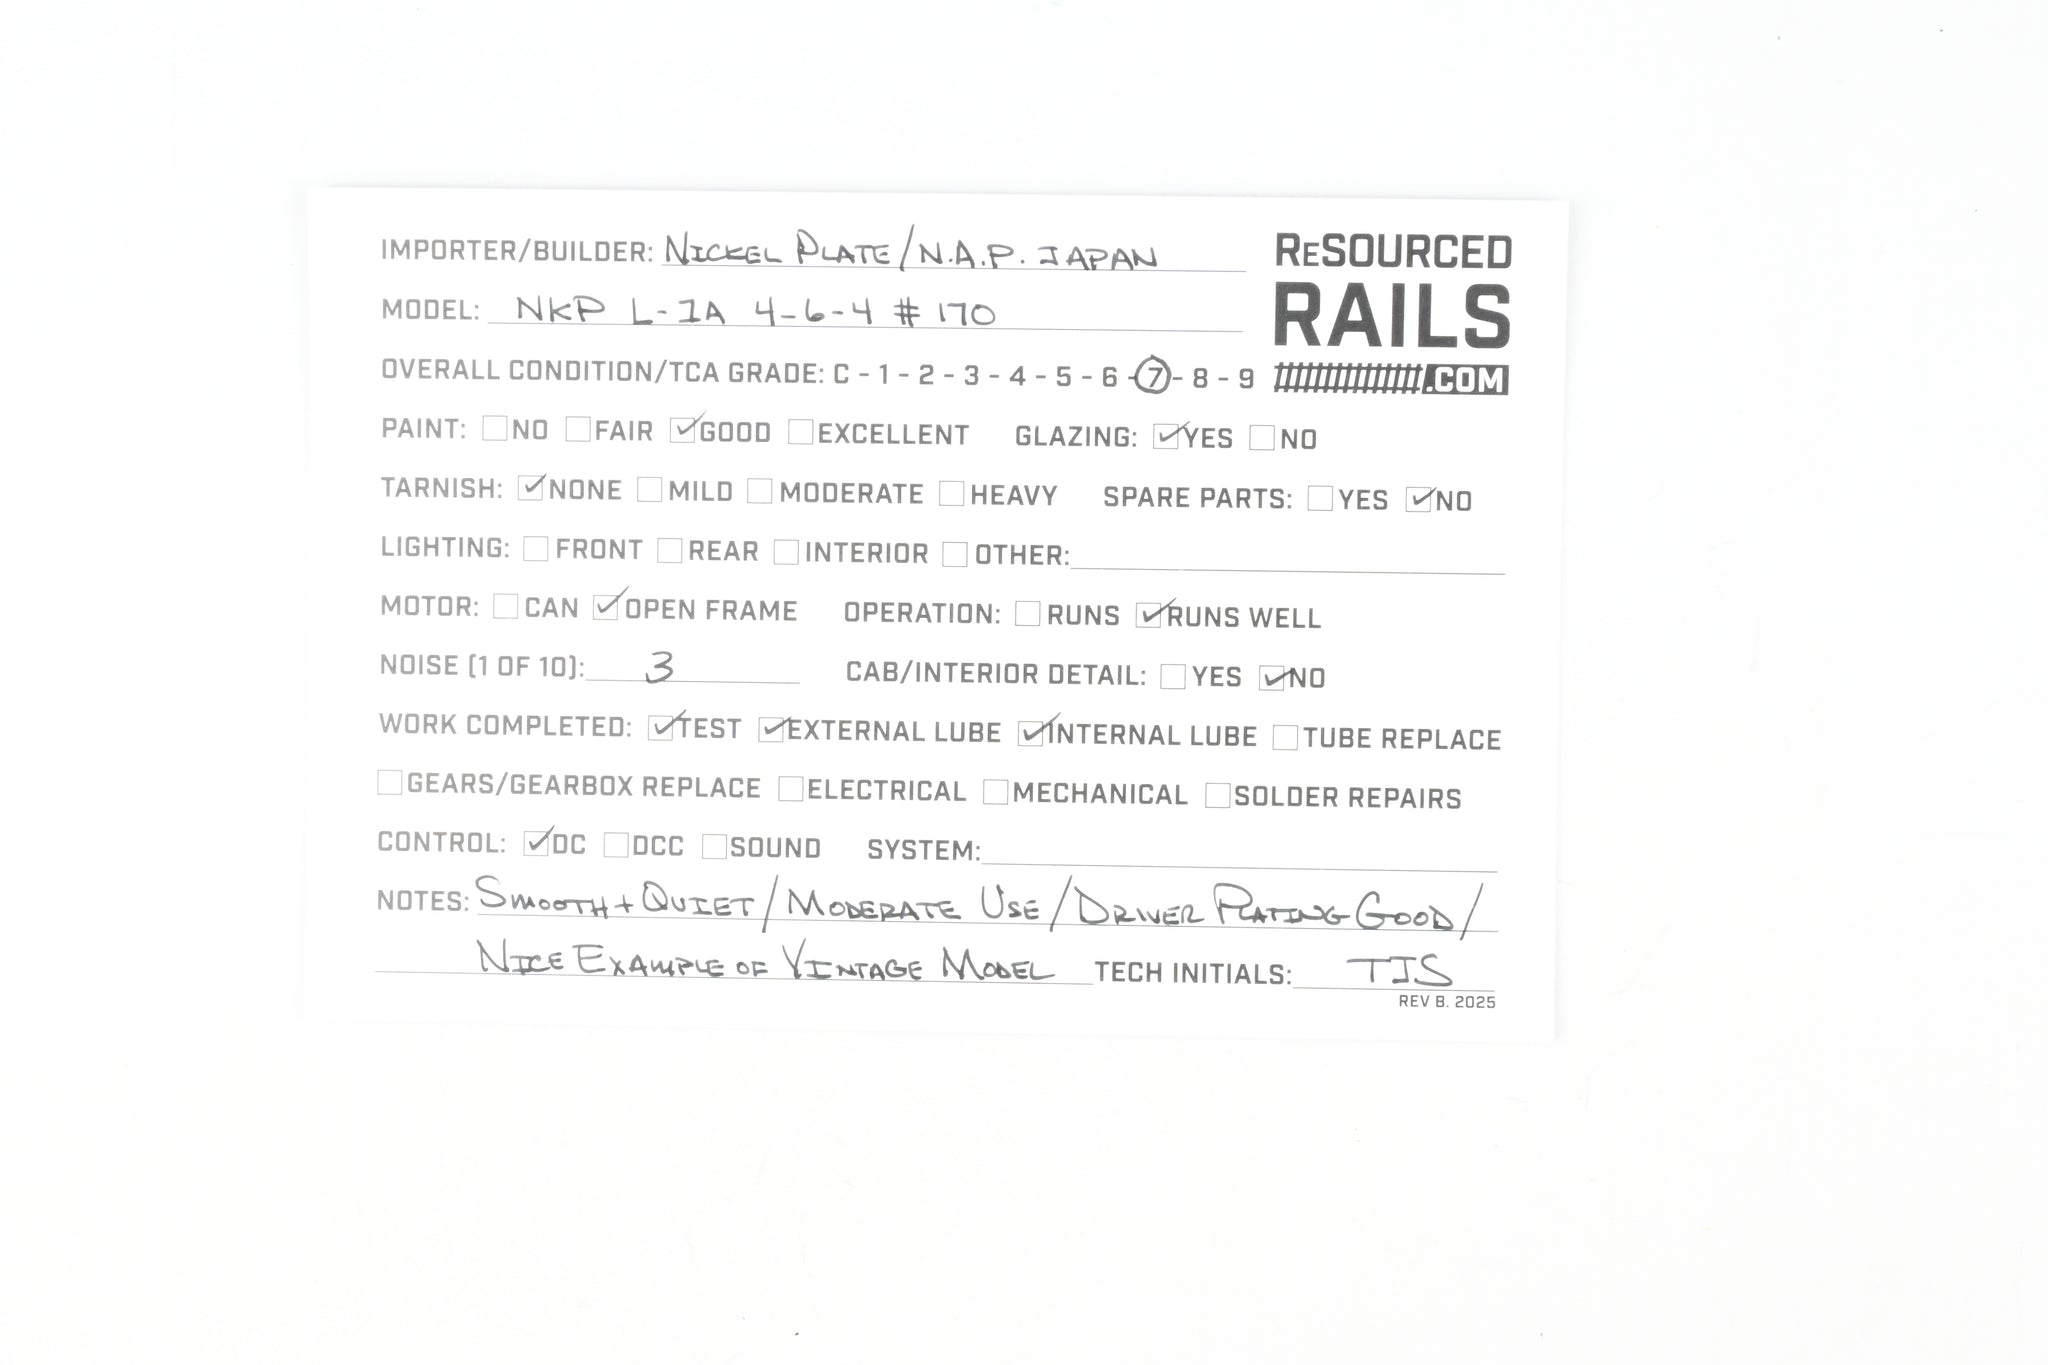 IMPORTER/BUILDER: NICKEL PLATE/N.A.P. JAPAN
ReSOURCED
RAILS
.COM
MODEL: NKP L-1A 4-6-4 # 170
OVERALL CONDITION/TCA GRADE: C - 1 - 2 - 3 - 4 - 5 - 6 - 7 - 8 - 9
PAINT: NO FAIR ✓GOOD EXCELLENT GLAZING: ✓YES NO
TARNISH: ✓NONE MILD MODERATE HEAVY SPARE PARTS: YES ✓NO
LIGHTING: FRONT REAR INTERIOR OTHER:
MOTOR: CAN ✓OPEN FRAME OPERATION: RUNS ✓RUNS WELL
NOISE (1 OF 10): 3 CAB/INTERIOR DETAIL: YES ✓NO
WORK COMPLETED: ✓TEST ✓EXTERNAL LUBE ✓INTERNAL LUBE TUBE REPLACE
GEARS/GEARBOX REPLACE ELECTRICAL MECHANICAL SOLDER REPAIRS
CONTROL: ✓DC DCC SOUND SYSTEM:
NOTES: SMOOTH + QUIET / MODERATE USE / DRIVER PLATING GOOD /
NICE EXAMPLE OF VINTAGE MODEL TECH INITIALS: TJS
REV B. 2025